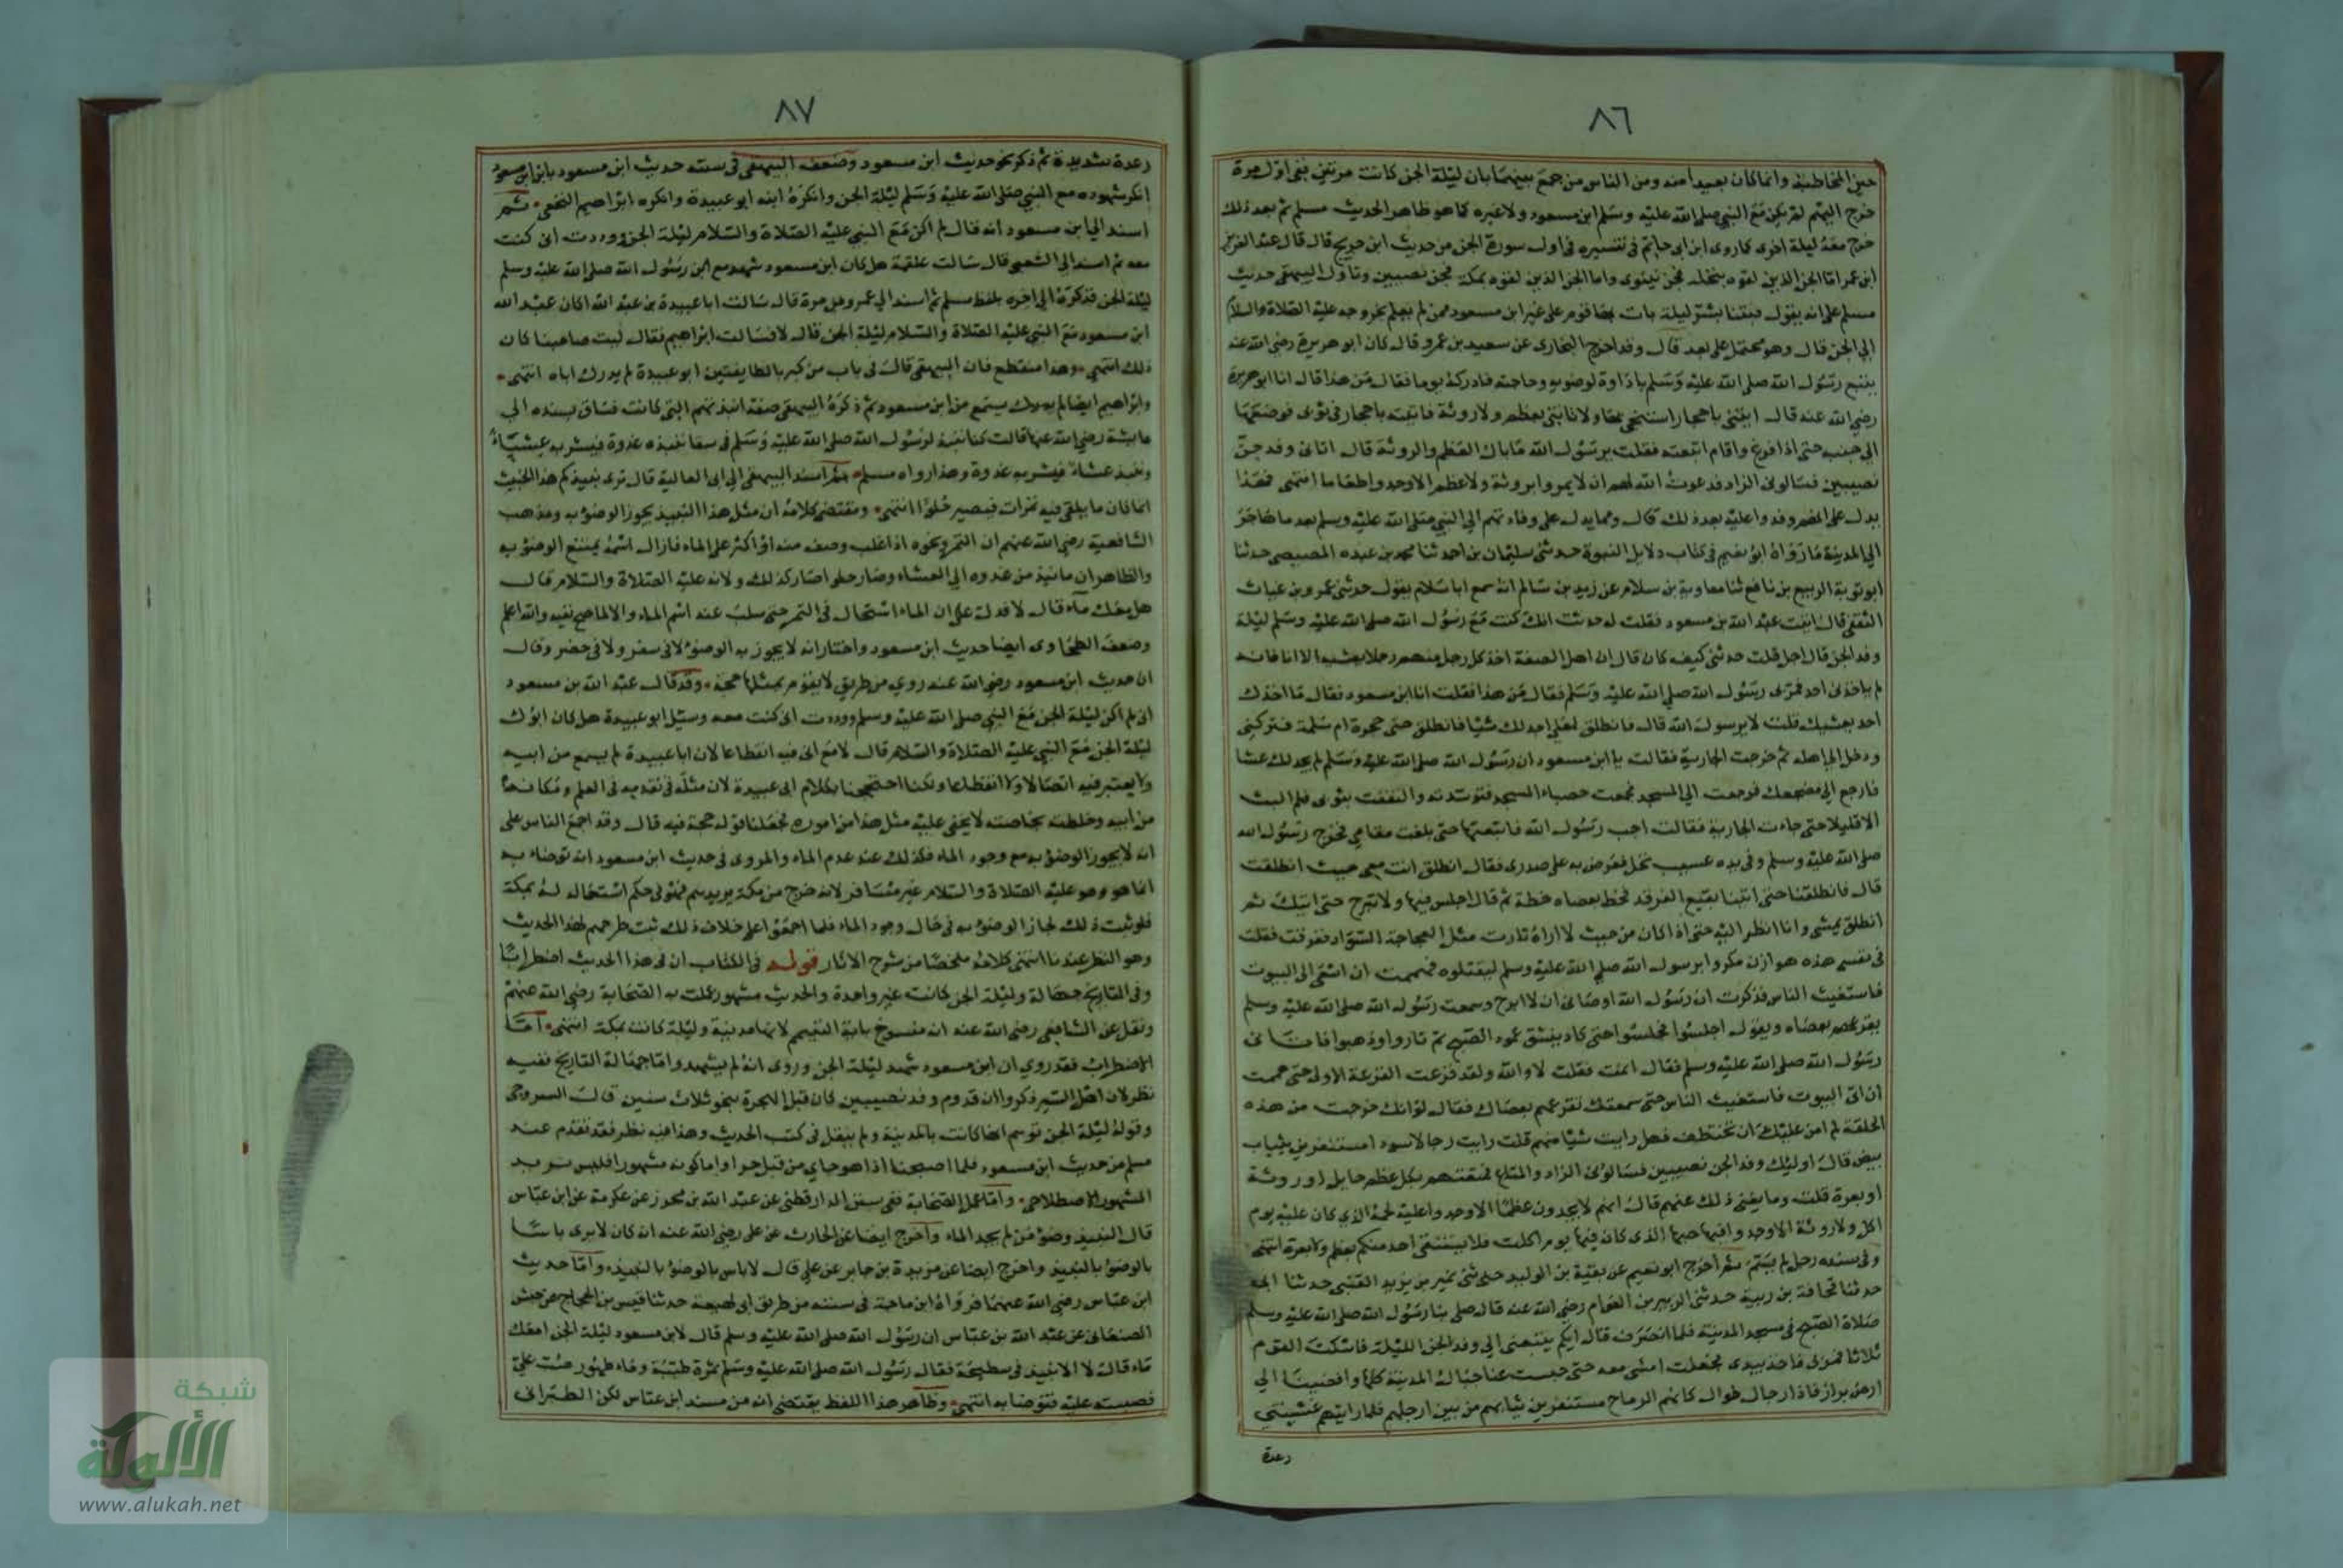 ٨٦
حين المخاطبة وانما كان بعيدا منه ومن الناس من جمع بينهما بان ليلة الجن كانت مرتين ففي اول مرة
خرج اليهم لم يكن مع النبي صلى الله عليه وسلم ابن مسعود ولا غيره كما هو ظاهر الحديث مسلم ثم بعد ذلك
خرج معه ليلة اخرى كما روى ابن ابي حاتم في تفسيره في اول سورة الجن من حديث ابن جريج قال قال عبد العزيز
ابن عمر اما الجن الذين لقوه بنخلة فجن نينوى واما الجن الذين لقوه بمكة فجن نصيبين وتاول البيهقي حديث
مسلم على انه يقول فبتنا بشر ليلة بات بها قوم على غير ابن مسعود ممن لم يعلم بخروجه عليه الصلاة والسلام
الي الجن قال وهو محتمل على بعد قال وقد اخرج البخاري عن سعيد بن عمرو قال كان ابو هريرة رضي الله عنه
يتبع رسول الله صلى الله عليه وسلم باداوة لوضوئه وحاجته فادركه يوما فقال من هذا قال انا ابو هريرة
رضي الله عنه قال ابغني باحجار استنجي بها ولا تاتني بعظم ولا روثة فاتيته باحجار في ثوبي فوضعتها
الي جنبه حتى اذا فرغ وقام اتبعته فقلت يرسول الله ما بال العظم والروثة قال اتاني وفد جن
نصيبين فسالوني الزاد فدعوت الله لهم ان لا يمروا بروثة ولا عظم الا وجدوا طعاما انتهى فهذا
يدل على انهم وفدوا عليه بعد ذلك قال ومما يدل على وفادتهم الي النبي صلى الله عليه وسلم بعد ما هاجر
الي المدينة ما رواه ابو نعيم في كتاب دلايل النبوة حدثني سليمان بن احمد ثنا محمد بن عبده المصيصي حدثنا
ابو توبة الربيع بن نافع ثنا معاوية بن سلام عن زيد بن سالم انه سمع ابا سلام يقول حدثني عمرو بن غيلان
الثقفي قال اتيت عبد الله بن مسعود فقلت له حدثت انك كنت مع رسول الله صلى الله عليه وسلم ليلة
وفد الجن قال اجل قلت حدثني كيف كان قال ان اهل الصفة اخذ كل رجل منهم رجلا يعشيه الا انا فانه
لم ياخذني احد فمر بي رسول الله صلي الله عليه وسلم فقال من هذا فقلت انا ابن مسعود فقال ما اخذك
احد يعشيك قلت لا يرسول الله قال فانطلق لعلي اجد لك شيا فانطلق حتى حجرة ام سلمة فتركني
ودخل الي اهله ثم خرجت الجارية فقالت يا ابن مسعود ان رسول الله صلى الله عليه وسلم لم يجد لك عشا
فارجع الي مضجعك فرجعت الي المسجد فجمعت حصباء المسجد فتوسدته والتففت بثوبي فلم البث
الا قليلا حتى جاءت الجارية فقالت اجب رسول الله فاتبعتها حتى بلغت مقامي فخرج رسول الله
صلى الله عليه وسلم وفي يده عسيب نخل فعرض به على صدري فقال انطلق انت معي حيث انطلقت
قال فانطلقنا حتى اتينا بقيع الغرقد فخط بعصاه خطة ثم قال اجلس فيها ولا تبرح حتى اتيك ثم
انطلق يمشي وانا انظر اليه حتى اذا كان من حيث لا اراه ثارت مثل العجاجة السوداء ففرقت فقلت
في نفسي هذه هوازن مكروا برسول الله صلى الله عليه وسلم ليقتلوه فهممت ان اسعى الى البيوت
فاستغيث الناس فذكرت ان رسول الله اوصاني ان لا ابرح وسمعت رسول الله صلى الله عليه وسلم
يقرعهم بعصاه ويقول اجلسوا فجلسوا حتى كاد ينشق عمود الصبح ثم ثاروا وذهبوا فاتاني
رسول الله صلى الله عليه وسلم فقال انمت فقلت لا والله ولقد فزعت الفزعة الاولى حتى هممت
ان اتي البيوت فاستغيث الناس حتى سمعتك تقرعهم بعصاك فقال لو انك خرجت من هذه
الحلقة لم امن عليك ان تختطف فهل رايت شيا منهم قلت رايت رجالا سودا مستثفرين بثياب
بيض قال اوليك وفد الجن نصيبين فسالوني الزاد والمتاع فمتعتهم بكل عظم حايل او روثة
او بعرة قلت وما يغني ذلك عنهم قال انهم لا يجدون عظما الا وجدوا عليه لحمه الذي كان عليه يوم
اكل ولا روثة الا وجدوا فيها حبها الذي كان فيها يوم اكلت فلا يستنقي احد منكم بعظم ولا بعرة انتهى
وفي سنده رجل لم يسم ثم اخرج ابو نعيم عن بقية بن الوليد حدثني نمير بن يزيد القيني حدثنا ابي
حدثنا قحافة بن ربيعة حدثني الزبير بن العوام رضي الله عنه قال صلى بنا رسول الله صلى الله عليه وسلم
صلاة الصبح في مسجد المدينة فلما انصرف قال ايكم يتبعني الي وفد الجن الليلة فاسكت القوم
ثلاثا فمر بي فاخذ بيدي فجعلت امشي معه حتى حبست عنا جبال المدينة كلها وافضينا الي
ارض براز فاذا رجال طوال كانهم الرماح مستثفرين ثيابهم من بين ارجلهم فلما رايتهم غشيتني
رعدة
٨٧
رعدة شديدة ثم ذكر نحو حديث ابن مسعود وضعف البيهقي في سننه حديث ابن مسعود بان ابن مسعود
انكر شهوده مع النبي صلى الله عليه وسلم ليلة الجن وانكره ابنه ابو عبيدة وانكره ابراهيم النخعي ثم
اسند الي ابن مسعود انه قال لم اكن مع النبي عليه الصلاة والسلام ليلة الجن ووددت اني كنت
معه ثم اسند الى الشعبي قال سالت علقمة هل كان ابن مسعود شهد مع ابن رسول الله صلى الله عليه وسلم
ليلة الجن فذكره الي اخره بلفظ مسلم ثم اسند الي عمرو بن مرة قال سالت ابا عبيدة بن عبد الله اكان عبد الله
ابن مسعود مع النبي عليه الصلاة والسلام ليلة الجن قال لا فسالت ابراهيم فقال ليت صاحبنا كان
ذلك انتهى وهذا منقطع فان البيهقي قال في باب من كبر بالطايفتين ابو عبيدة لم يدرك اباه انتهى
وابراهيم ايضا لم يدرك سمع من ابن مسعود ثم ذكره البيهقي صفة انبذتهم التي كانت فساق بسنده الي
عايشة رضي الله عنها قالت كنا ننبذ لرسول الله صلى الله عليه وسلم في سقا ننبذه غدوة فيشربه عيشاء
وننبذ عشاء فيشربه غدوة وهذا رواه مسلم ثم اسند البيهقي الي ابي العالية قال ترى نبيذكم هذا الخبيث
انما كان ما يلقى فيه تمرات فيصير حلوا انتهى ومقتضى كلامه ان مثل هذا النبيذ يجوز الوضؤ به ومذهب
الشافعية رضي الله عنهم ان التمر ونحوه اذا غلب وصف منه او اكثر على الماء فازال اسمه يمتنع الوضؤ به
والظاهر ان ما نبذ من غدوه الي العشاء وصار حلوا صار كذلك ولانه عليه الصلاة والسلام قال
هل معك مآء قال لا فدلة على ان الماء استحال في التمر حتى سلب عنه اسم الماء والا لما صح نفيه والله اعلم
وضعف الطحاوى ايضا حديث ابن مسعود واختار انه لا يجوز به الوضؤ لا في سفر ولا في حضر وقال
ان حديث ابن مسعود رضي الله عنه روي من طريق لا يقوم بمثلها حجة وقد قال عبد الله بن مسعود
اني لم اكن ليلة الجن مع النبي صلى الله عليه وسلم ووددت اني كنت معه وسئل ابو عبيدة هل كان ابوك
ليلة الجن مع النبي عليه الصلاة والسلام قال لا مع ان فيه انقطاعا لان ابا عبيدة لم يسمع من ابيه
ولا يعتبر فيه اتصالا ولا انقطاعا ولكنا احتججنا بكلام ابي عبيدة لان مثله في تقدمه في العلم ومكانه
من ابيه وخلطته بخاصته لا يخفى عليه مثل هذا من اموره فجعلنا قوله حجة فيه قال وقد اجمع الناس على
انه لا يجوز الوضؤ به مع وجود الماء فكذلك عند عدم الماء والمروى في حديث ابن مسعود انه توضاء به
انما هو وهو عليه الصلاة والسلام غير مسافر لانه خرج من مكة يريدهم فهو في حكم استعماله له بمكة
فلو ثبت ذلك لجاز الوضؤ به في حال وجود الماء فلما اجمعوا على خلاف ذلك ثبت طرحهم لهذا الحديث
وهو النظر عندنا انتهى كلامه ملخصا من شرح الاثار قوله في الكتاب ان في هذا الحديث اضطرابا
وفي التاريخ جهالة وليلة الجن كانت غير واحدة والحديث مشهور عملت به الصحابة رضي الله عنهم
ونقل عن الشافعي رضي الله عنه انه منسوخ باية التيمم لانها مدنية وليلة كانت بمكة انتهى اما
الاضطراب فقد روي ان ابن مسعود شهد ليلة الجن وروى انه لم يشهد واما جهالة التاريخ ففيه
نظر لان اهل السير ذكروا ان قدوم وفد نصيبين كان قبل الهجرة بنحو ثلاث سنين قال السروجي
وقوله ليلة الجن توهم انها كانت بالمدينة ولم ينقل في كتب الحديث وهذا فيه نظر فقد تقدم عند
مسلم من حديث ابن مسعود فلما اصبحنا اذا هو جاي من قبل حرا واما كونه مشهورا فليس يريد
المشهور الاصطلاحي واما عمل الصحابة ففي سنن الدارقطني عن عبد الله بن محرر عن عكرمة عن ابن عباس
قال النبيذ وضؤ من لم يجد الماء واخرج ايضا عن الحارث عن على رضي الله عنه انه كان لا يرى باسا
بالوضؤ بالنبيذ واخرج ايضا عن مزيدة بن جابر عن علي قال لا باس بالوضؤ بالنبيذ واما حديث
ابن عباس رضي الله عنهما فرواه ابن ماجة في سننه من طريق ابن لهيعة حدثنا قيس بن الحجاج عن حنش
الصنعاني عن عبد الله بن عباس ان رسول الله صلى الله عليه وسلم قال لابن مسعود ليلة الجن امعك
ماء قالت لا الا نبيذ في سطيحة فقال رسول الله صلى الله عليه وسلم تمرة طيبة وماء طهور صب علي
فصببت عليه فتوضا به انتهى وظاهر هذا اللفظ يقتضي انه من مسند ابن عباس لكن الطبراني
شبكة
الألوكة
www.alukah.net